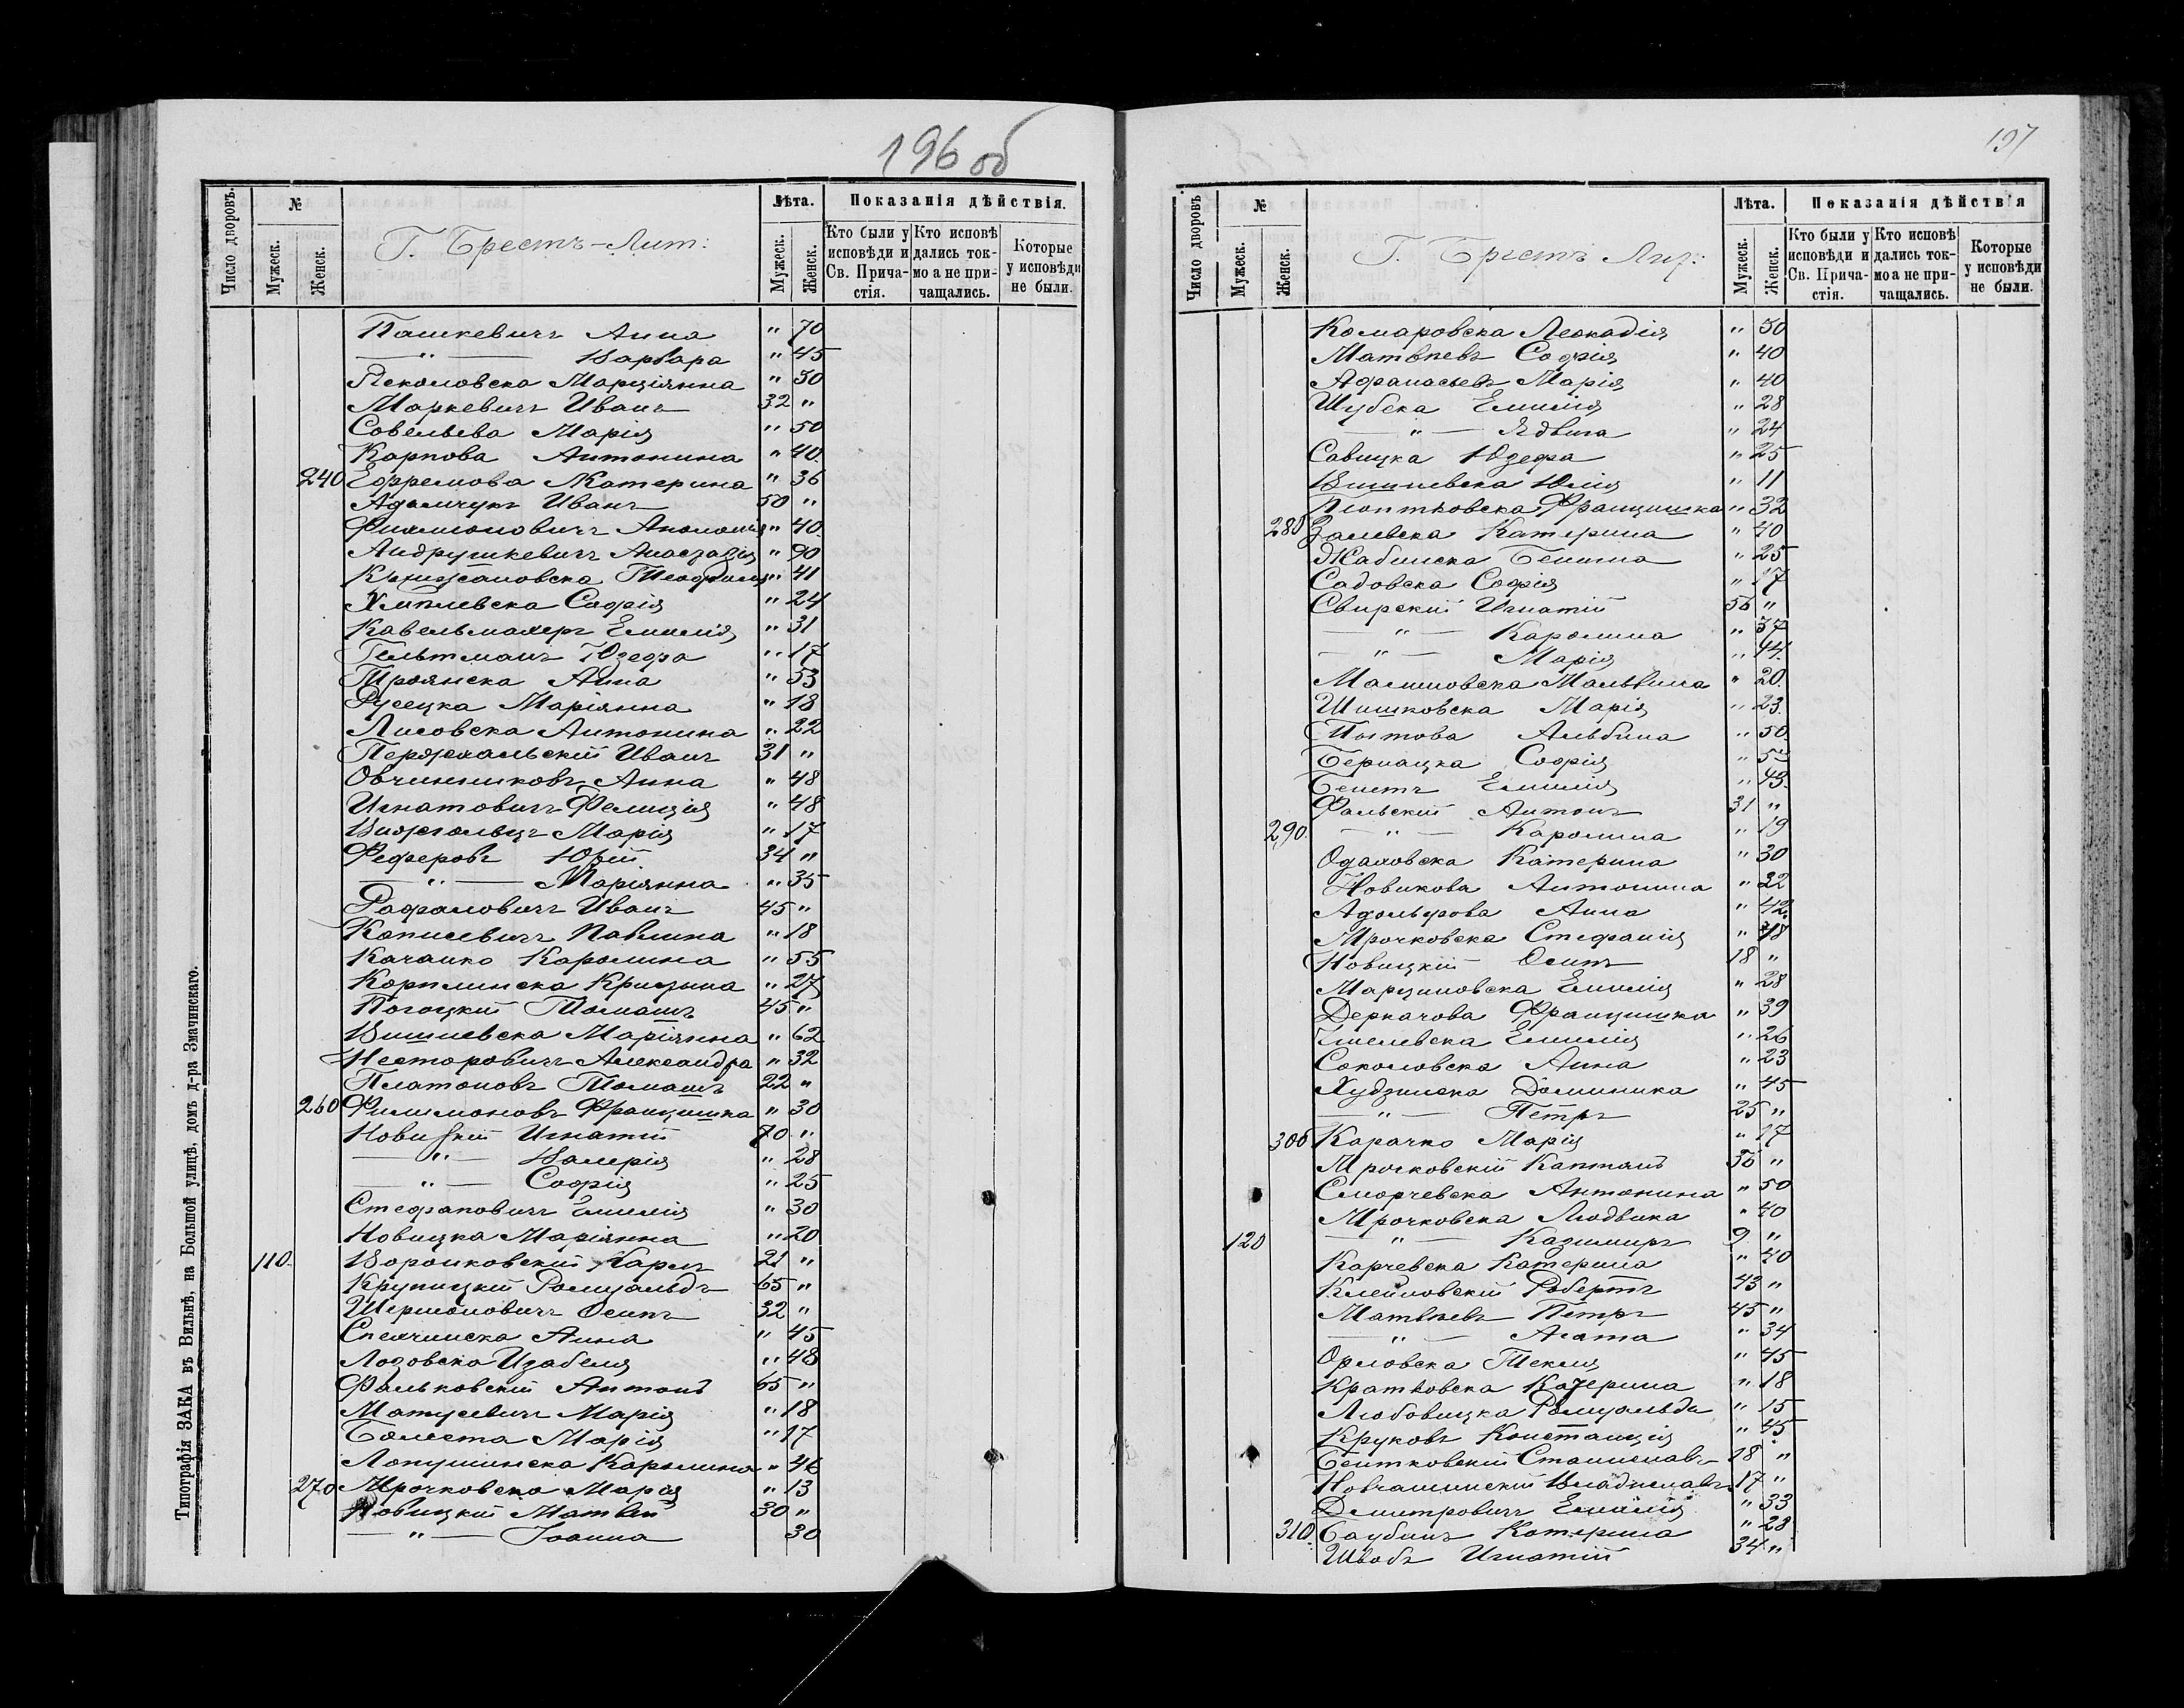 196 об
Число дворовъ.
№
Мужеск.
Женск.
Г. Брестъ-Лит:
Лѣта.
Мужеск.
Женск.
Показанія дѣйствія.
Кто были у исповѣди и Св. Прича-стія.
Кто исповѣ дались ток-мо а не при-чащались.
Которые у исповѣди не были.
Пашкевичъ Анна " 70
— " — Варвара " 45
Марціянна " 50
Маркевичъ Иванъ 32 "
Савельева Марія " 50
Карпова Антонина " 40.
240 Ефремова Катерина " 36
Адамчукъ Иванъ 50 "
Филимоновичъ Аполонія " 40.
Андрушкевичъ Анастазія " 90
Теофилія " 41
Софія " 24
Кавельмахеръ Емилія " 31
Гельтманъ Юзефа " 17
Троянска Анна " 53
Русецка Маріянна " 18
Лисовска Антонина " 22
Иванъ 31 "
Овчинниковъ Анна " 48
Игнатовичъ Фелиція " 48
Марія " 17
Феферовъ Юрій 34 "
— " — Маріянна " 35
Рафаловичъ Иванъ 45 "
Павлина " 18
Качанко Каролина " 55
Корплинска Крисзина " 27
Погоцкій Томашъ 45 "
Вишневска Маріянна " 62
Несторовичъ Александра " 32
Платоновъ Томашъ 22 "
260 Филимоновъ Францишка " 30
Новицкій Игнатій 70 "
— " — Валерія " 28
— " — Софія " 25
Стефановичъ Емилія " 30
Новицка Маріянна " 20
110. Воронковскій Карлъ 21 "
Крупицкій Ромуальдъ 65 "
Шермоновичъ Осипъ 32 "
Анна " 45
Лозовска Изабеля " 48
Фальковскій Антонъ 65 "
Матусевичъ Марія " 18
Марія " 17
Лопушинска Каролина " 46
270 Мрочковска Марія " 13
Новицкій Матвѣй 30 "
— " — Іоанна 30
Типографія ЗАКА въ Вильнѣ, на Большой улицѣ, домъ д-ра Змачинскаго.
197
Число дворовъ
№
Мужеск.
Женск.
Г. Брестъ Лит:
Лѣта.
Мужеск.
Женск.
Показанія дѣйствія
Кто были у исповѣди и Св. Прича-стія.
Кто исповѣ дались ток-мо а не при-чащались.
Которые у исповѣди не были.
Комаровска Леокадія " 50
Матвѣевъ Софія " 40
Афанасьевъ Марія " 40
Шубска Емилія " 28
— " — Ядвига " 24
Савицка Юзефа " 25
Вишневска Юлія " 11
Піонтковска Францишка " 32
280 Залевска Катерина " 40
Жабинска Бенигна " 25
Садовска Софія " 17
Свирскій Игнатій 56 "
— " — Каролина " 37
— " — Марія " 44.
Малиновска Мальвина " 20.
Шишковска Марія " 23.
Альбина " 50.
Бернацка Софія "
Емилія " 43.
Фальскій Антонъ 31 "
290. — " — Каролина " 19
Катерина " 30
Новикова Антонина " 22
Адольфова Анна " 42.
Мрочковска Стефанія " 18
Новицкій Осипъ 18 "
Марциновска Емилія " 28
Деркачова Францишка " 39
Емилія " 26
Соколовска Анна " 23
Худзинска Доминика " 45
— " — Петръ 25 "
300 Карачко Марія " 17
Мрочковскій Каптанъ 36 "
Сморчевска Антонина " 50
Мрочковска Людвика " 40
120 — " — Казимиръ 9 "
Карчевска Катерина " 40
Робертъ 43 "
Матвѣевъ Петръ 45 "
— " — Агата " 34
Орловска Текля " 45
Кратковска Катерина " 18
Любовицка Ромуальда " 15
Круковъ Констанція " 45
Бентковскій Станиславъ 18 "
Владиславъ 17 "
Дмитровичъ Емилія " 33
310. Катерина " 28
Швабъ Игнатій 34 "